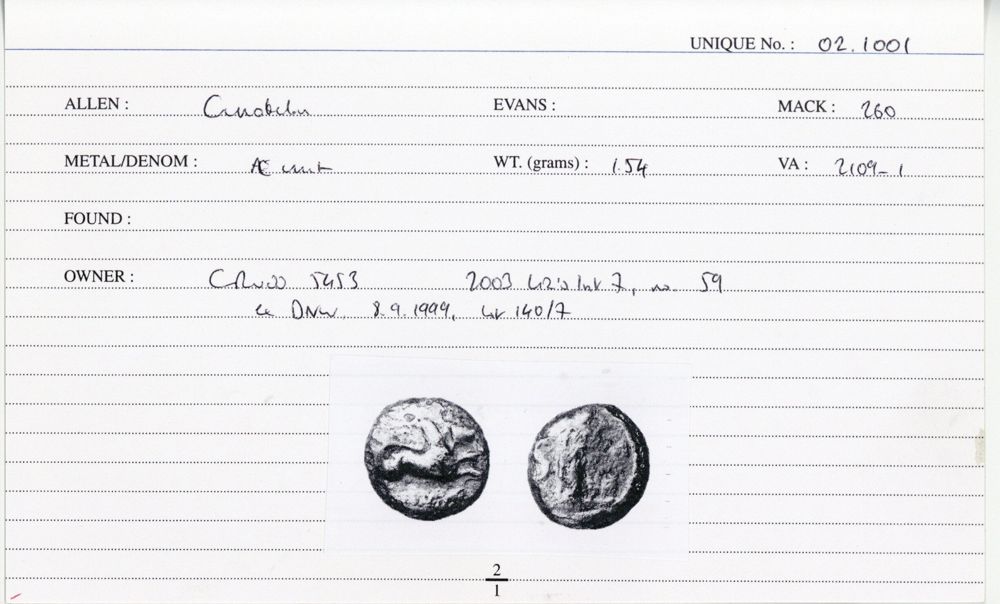 UNIQUE No. : 02.1001
ALLEN : Cunobelin EVANS : MACK : 260
METAL/DENOM : Æ unit WT. (grams) : 1.54 VA : 2109-1
FOUND :
OWNER : CR 5453 2003 List 7, no. 59
ex DNW 8.9.1999, lot 140/7
2
1